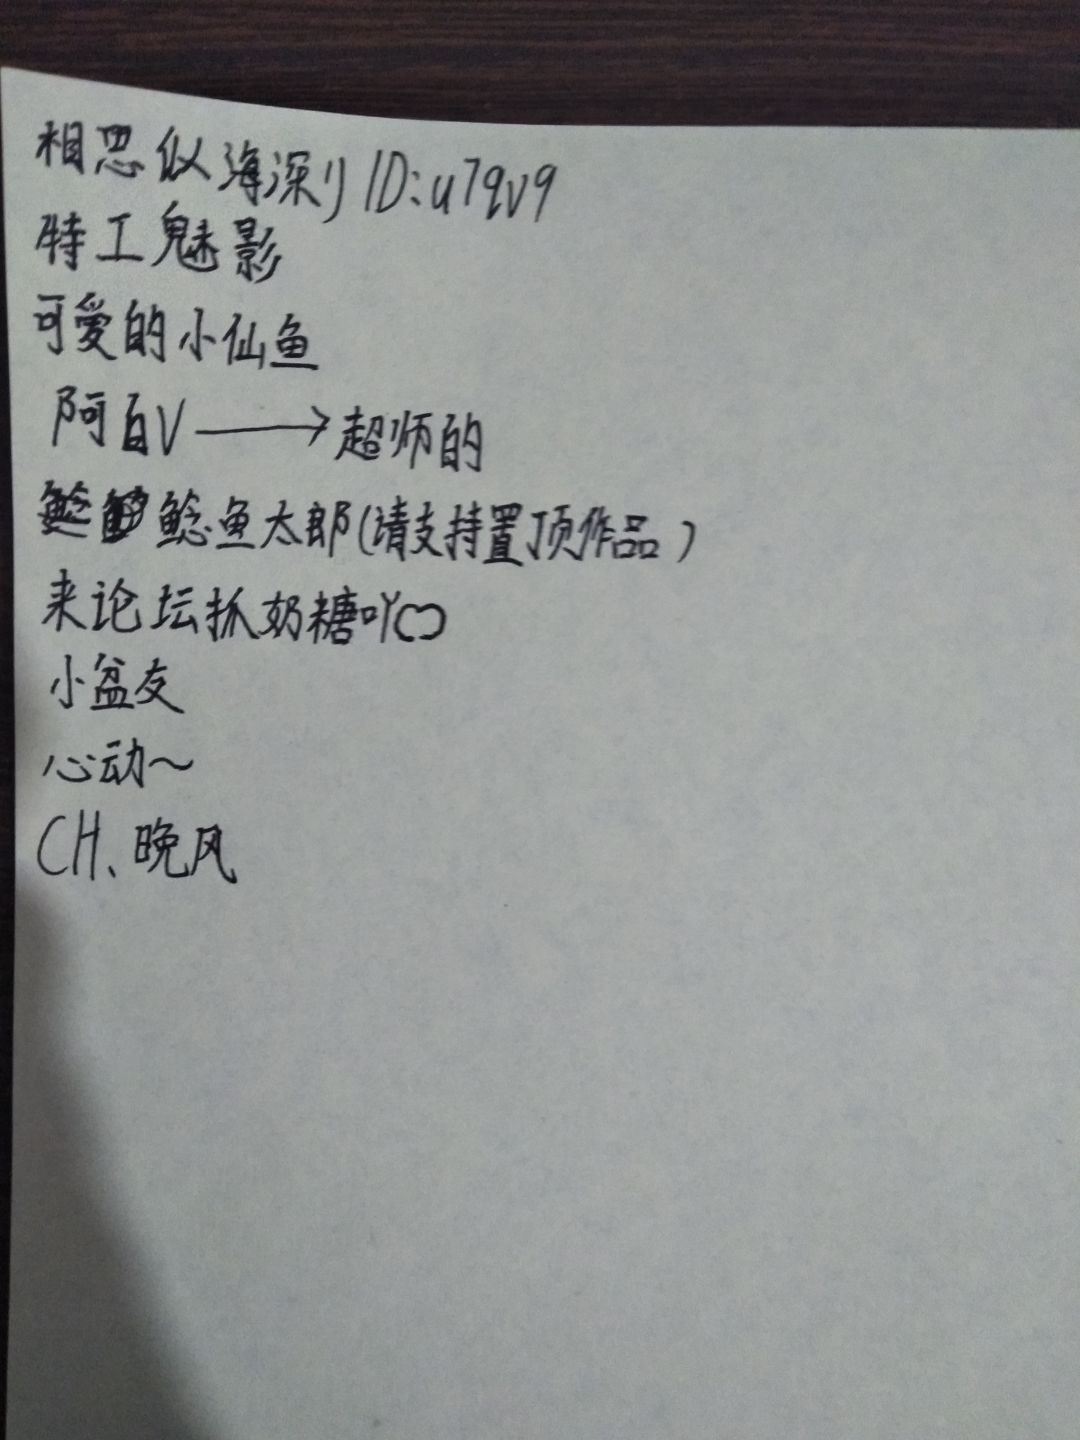 相思似海深刂ID:u7qv9
特工魅影
可爱的小仙鱼
阿白V——→超师的
鲶鱼太郎(请支持置顶作品)
来论坛抓奶糖吖♡
小盆友
心动～
CH、晚风